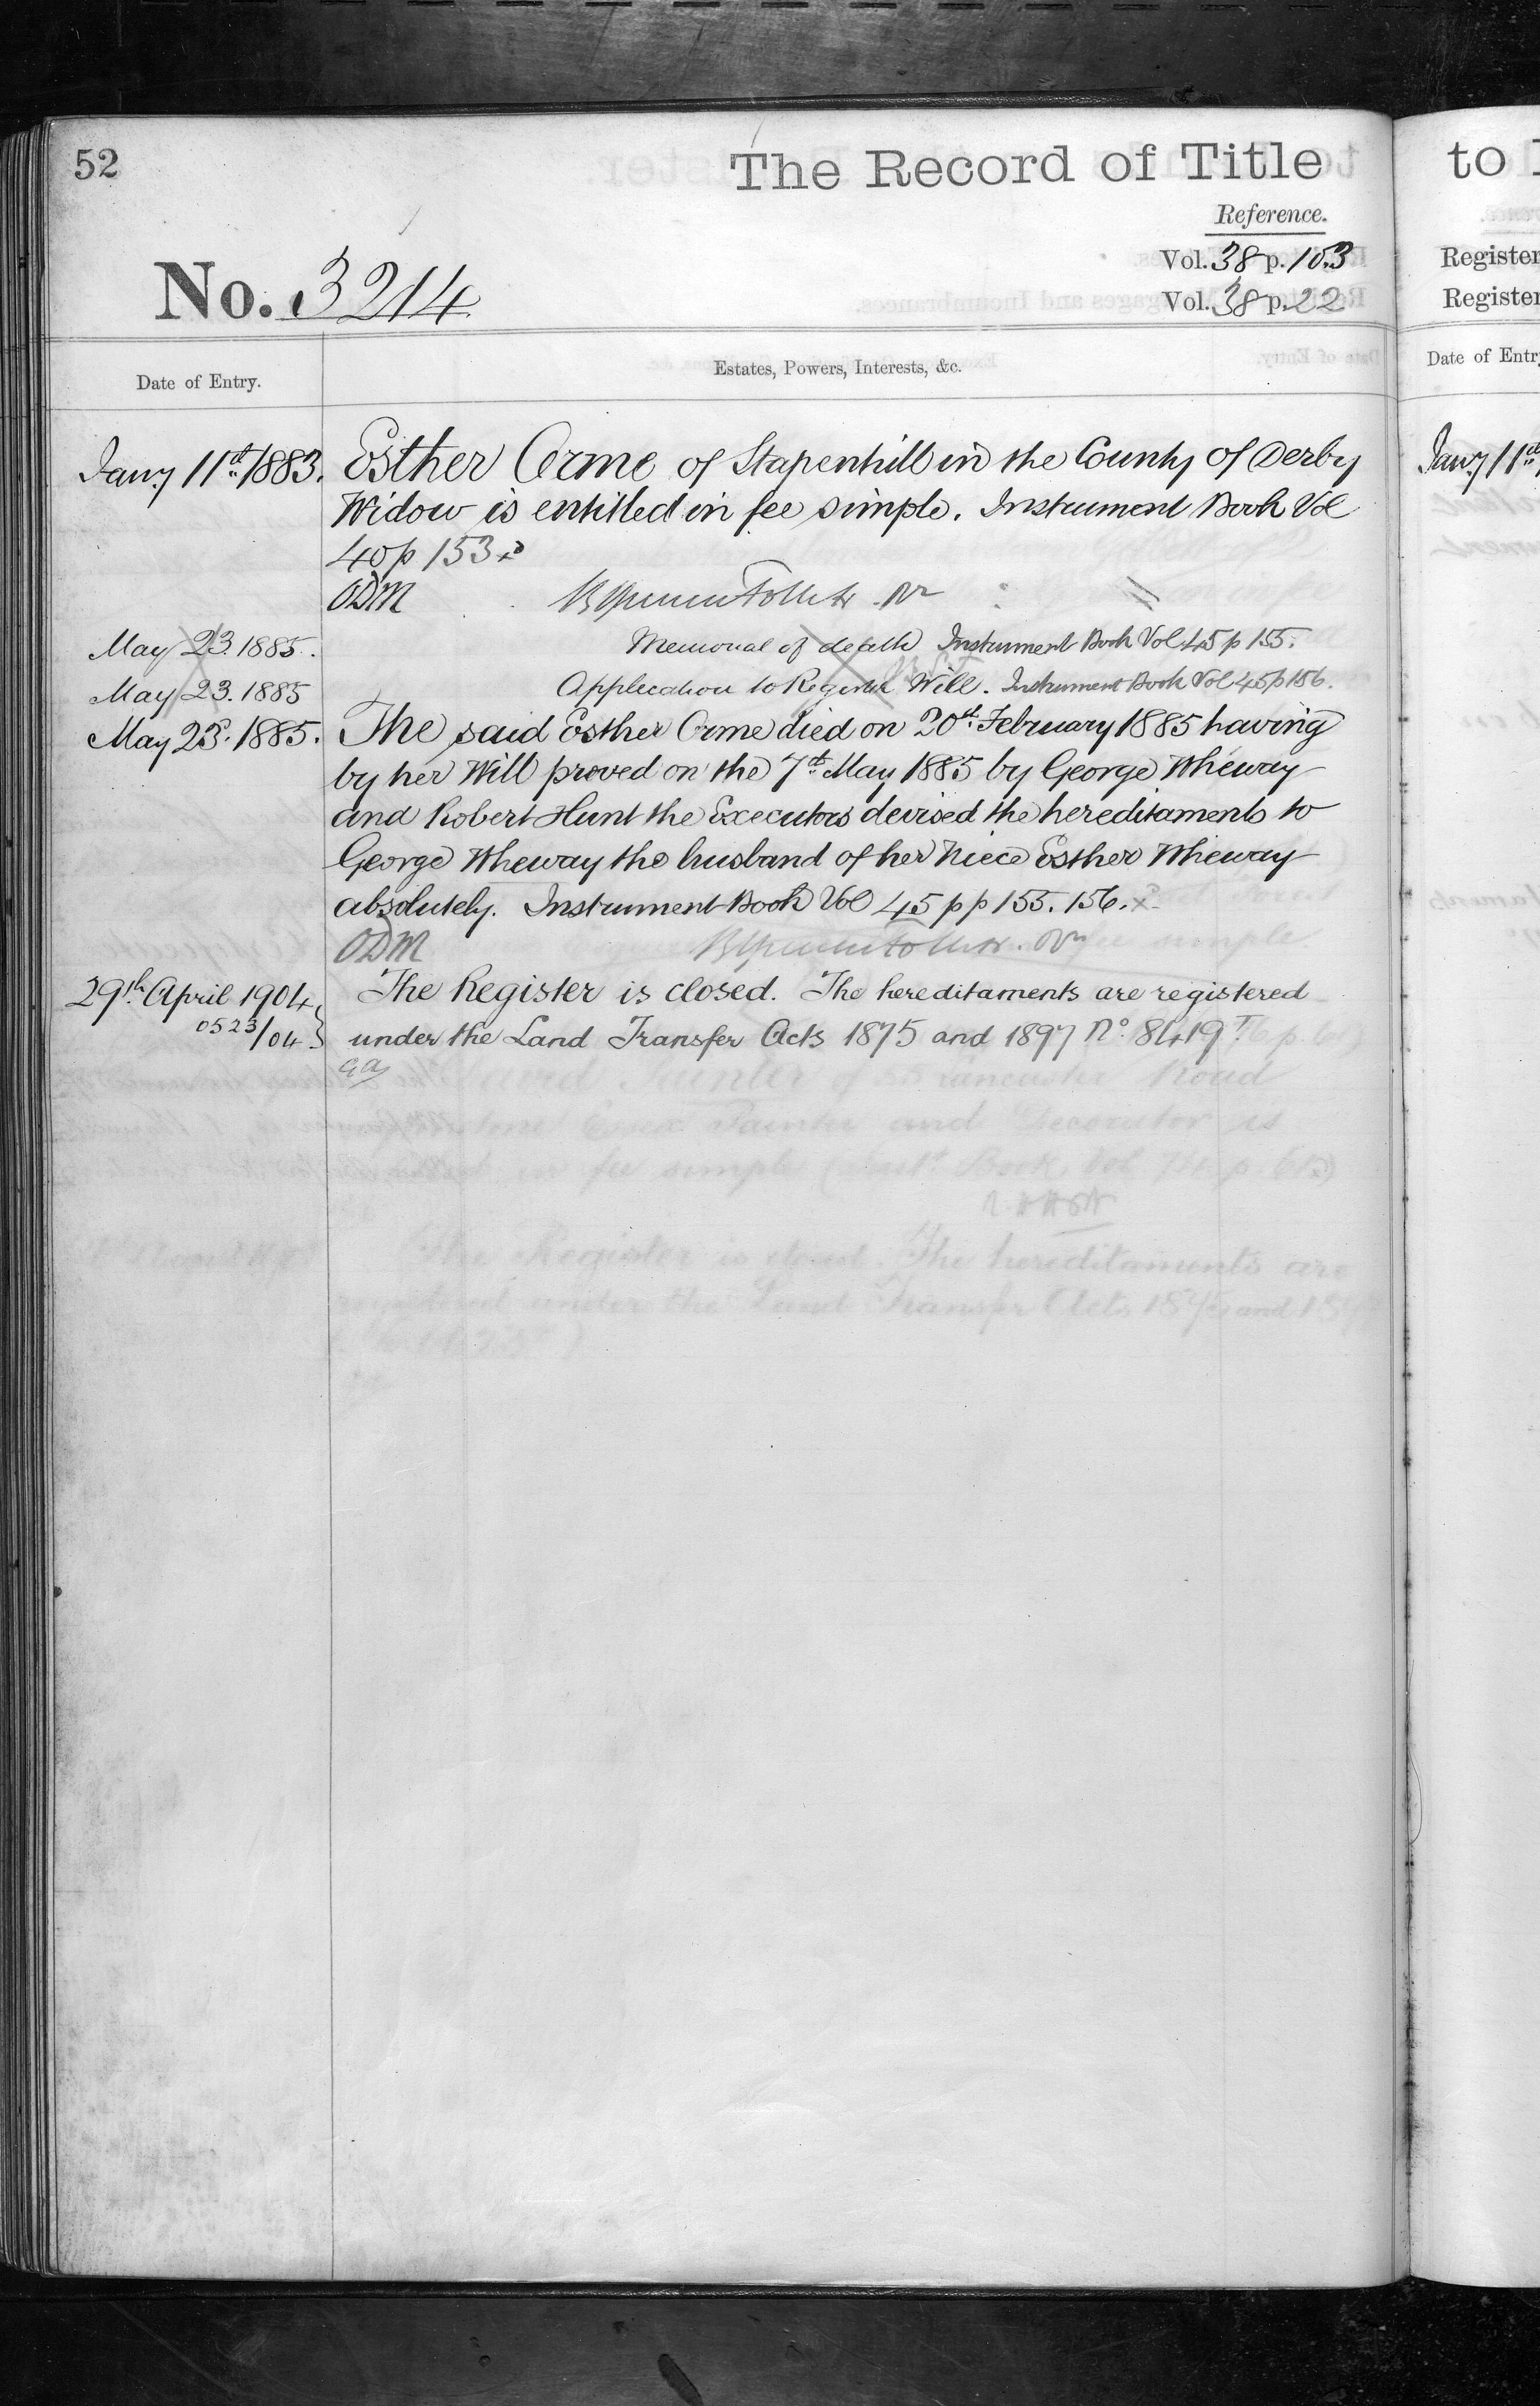 52
The Record of Title
Reference.
No. 3214
Vol. 38 p. 103
Vol. 38 p. 22
Date of Entry.
Estates, Powers, Interests, &c.
Jany 11th 1883.
Esther Orme of Stapenhill in the County of Derby
Widow is entitled in fee simple. Instrument Book Vol
40 p 153
ODM
May 23. 1885.
Memorial of death Instrument Book Vol 45 p 155.
May 23. 1885
Application to Register Will. Instrument Book Vol 45 p 156.
May 23. 1885.
The said Esther Orme died on 20th February 1885 having
by her Will proved on the 7th May 1885 by George Wheway
and Robert Hunt the Executors devised the hereditaments to
George Wheway the husband of her Niece Esther Wheway
absolutely. Instrument Book Vol 45 pp 155. 156.
ODM
29th April 1904
0523/04
The Register is closed. The hereditaments are registered
under the Land Transfer Acts 1875 and 1897 No. 8419
to
Register
Register
Date of Entr
Jany 11th